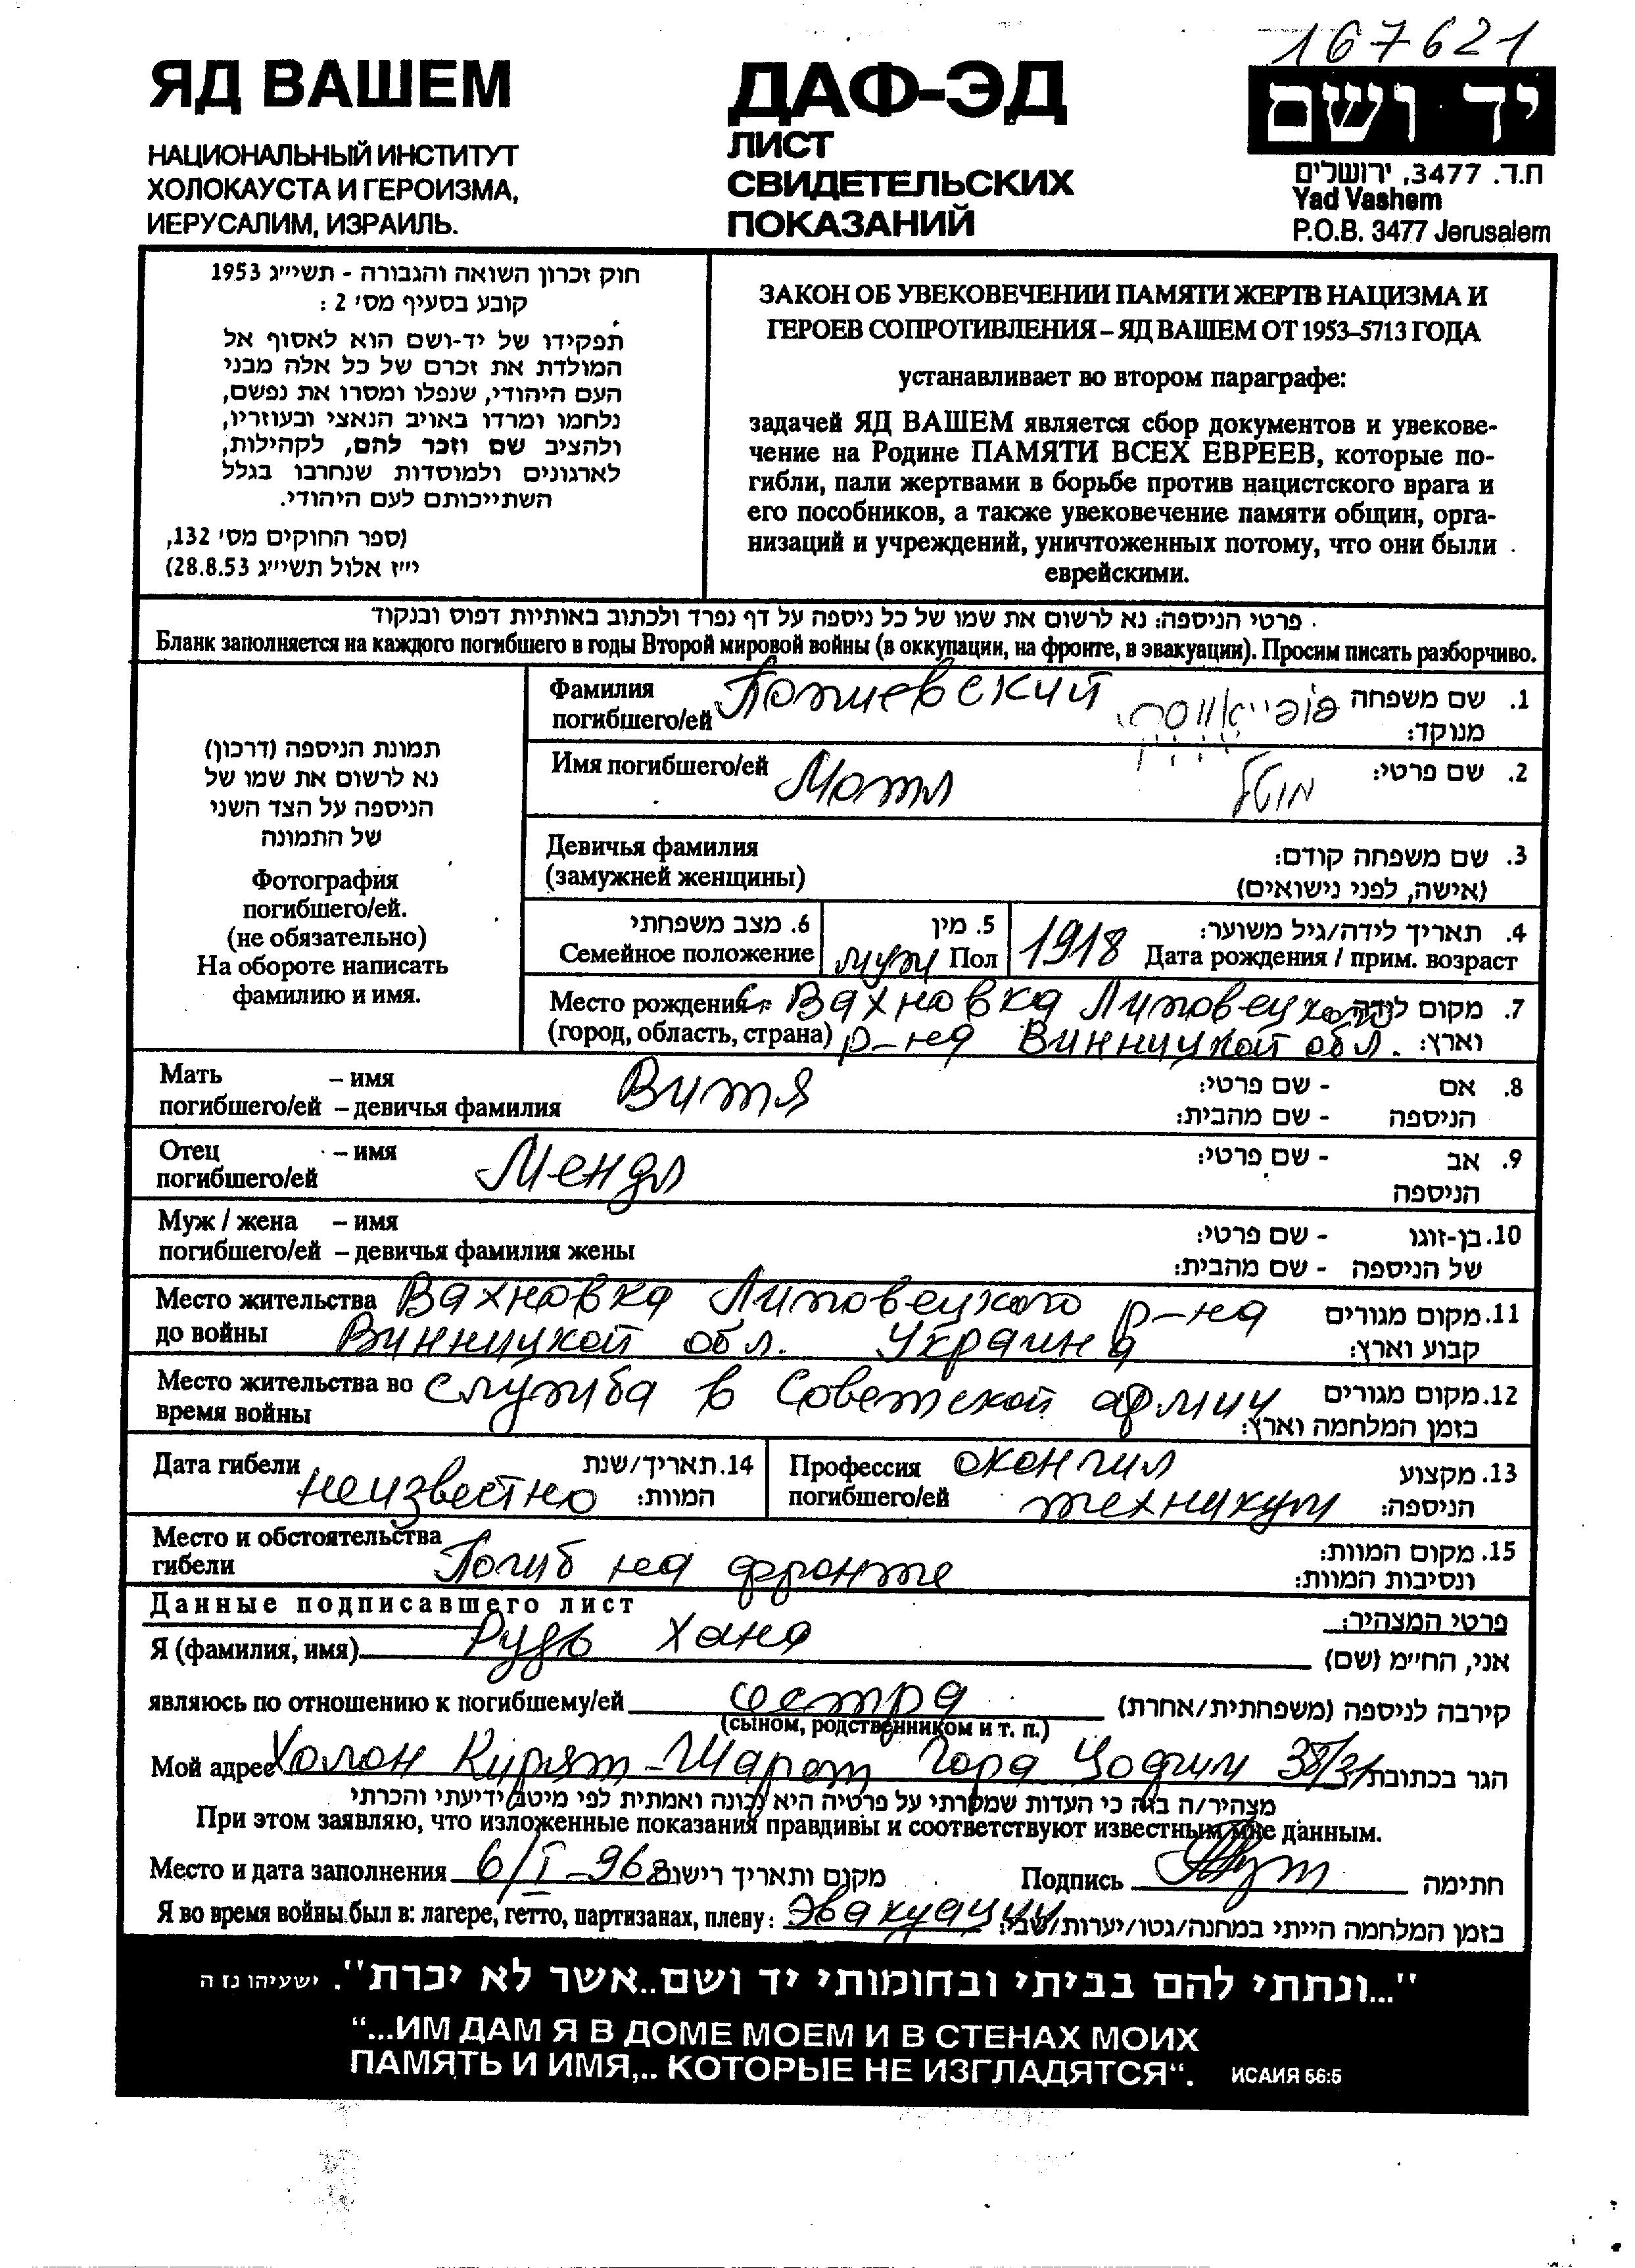 167621
ЯД ВАШЕМ
НАЦИОНАЛЬНЫЙ ИНСТИТУТ
ХОЛОКАУСТА И ГЕРОИЗМА,
ИЕРУСАЛИМ, ИЗРАИЛЬ.
ДАФ-ЭД
ЛИСТ
СВИДЕТЕЛЬСКИХ
ПОКАЗАНИЙ
יד ושם
ת.ד. 3477, ירושלים
Yad Vashem
P.O.B. 3477 Jerusalem
חוק זכרון השואה והגבורה - תשי״ג 1953
קובע בסעיף מס׳ 2 :
תפקידו של יד-ושם הוא לאסוף אל
המולדת את זכרם של כל אלה מבני
העם היהודי, שנפלו ומסרו את נפשם,
נלחמו ומרדו באויב הנאצי ובעוזריו,
ולהציב שם וזכר להם, לקהילות,
לארגונים ולמוסדות שנחרבו בגלל
השתייכותם לעם היהודי.
(ספר החוקים מס׳ 132,
י״ז אלול תשי״ג 28.8.53)
ЗАКОН ОБ УВЕКОВЕЧЕНИИ ПАМЯТИ ЖЕРТВ НАЦИЗМА И
ГЕРОЕВ СОПРОТИВЛЕНИЯ – ЯД ВАШЕМ ОТ 1953–5713 ГОДА
устанавливает во втором параграфе:
задачей ЯД ВАШЕМ является сбор документов и увекове-
чение на Родине ПАМЯТИ ВСЕХ ЕВРЕЕВ, которые по-
гибли, пали жертвами в борьбе против нацистского врага и
его пособников, а также увековечение памяти общин, орга-
низаций и учреждений, уничтоженных потому, что они были
еврейскими.
פרטי הניספה: נא לרשום את שמו של כל ניספה על דף נפרד ולכתוב באותיות דפוס ובנקוד
Бланк заполняется на каждого погибшего в годы Второй мировой войны (в оккупации, на фронте, в эвакуации). Просим писать разборчиво.
תמונת הניספה (דרכון)
נא לרשום את שמו של
הניספה על הצד השני
של התמונה
Фотография
погибшего/ей.
(не обязательно)
На обороте написать
фамилию и имя.
Фамилия 1. שם משפחה
погибшего/ей מנוקד:
Имя погибшего/ей Мотл מוטל 2. שם פרטי:
Девичья фамилия 3. שם משפחה קודם:
(замужней женщины) (אישה, לפני נישואים)
6. מצב משפחתי 5. מין 4. תאריך לידה/גיל משוער:
Семейное положение муж Пол 1918 Дата рождения / прим. возраст
Место рождения с. Вахновка Липовецкого 7. מקום לידה
(город, область, страна) р-на Винницкой обл. וארץ:
Мать – имя Витя 8. אם - שם פרטי:
погибшего/ей – девичья фамилия הניספה - שם מהבית:
Отец – имя Мендл 9. אב - שם פרטי:
погибшего/ей הניספה
Муж / жена – имя 10. בן-זוגו - שם פרטי:
погибшего/ей – девичья фамилия жены של הניספה - שם מהבית:
Место жительства Вахновка Липовецкого р-на 11. מקום מגורים
до войны Винницкой обл. Украина קבוע וארץ:
Место жительства во служба в Советской армии 12. מקום מגורים
время войны בזמן המלחמה וארץ:
Дата гибели неизвестно 14. תאריך/שנת המוות:
Профессия окончил 13. מקצוע
погибшего/ей техникум הניספה:
Место и обстоятельства 15. מקום המוות:
гибели Погиб на фронте ונסיבות המוות:
Данные подписавшего лист פרטי המצהיר:
Я (фамилия, имя) Рудь Хана אני, החי״מ (שם)
являюсь по отношению к погибшему/ей сестра קירבה לניספה (משפחתית/אחרת)
(сыном, родственником и т. п.)
Мой адрес Холон Кирят-Шарет Гора Цофим 38/31 הגר בכתובת
מצהיר/ה בזה כי העדות שמסרתי על פרטיה היא נכונה ואמתית לפי מיטב ידיעתי והכרתי
При этом заявляю, что изложенные показания правдивы и соответствуют известным мне данным.
Место и дата заполнения 6/I-96г מקום ותאריך רישום Подпись חתימה
Я во время войны был в: лагере, гетто, партизанах, плену: Эвакуации בזמן המלחמה הייתי במחנה/גטו/יערות/שבי:
"...ונתתי להם בביתי ובחומותי יד ושם..אשר לא יכרת". ישעיהו נז ה
“...ИМ ДАМ Я В ДОМЕ МОЕМ И В СТЕНАХ МОИХ
ПАМЯТЬ И ИМЯ,.. КОТОРЫЕ НЕ ИЗГЛАДЯТСЯ“. ИСАИЯ 56:5